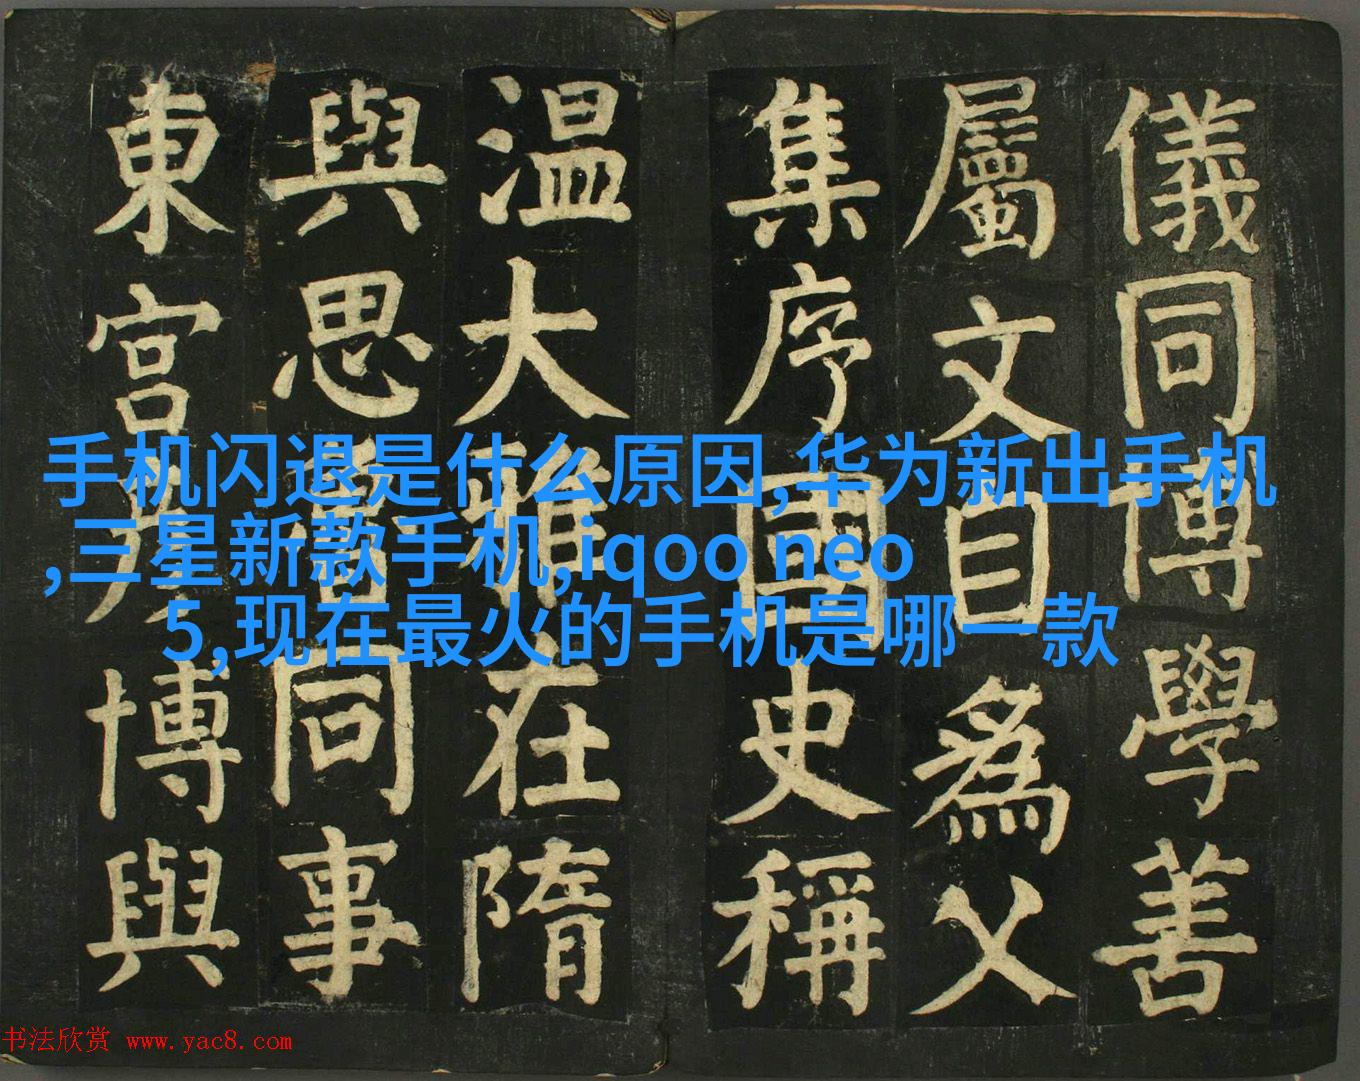 儀同博學善
屬文自爲父
集序國史稱
温大雅在隋
與思同事
東宮博與
手机闪退是什么原因,华为新出手机
,三星新款手机,iqoo neo
5,现在最火的手机是哪一款
书法欣赏 www.yac8.com